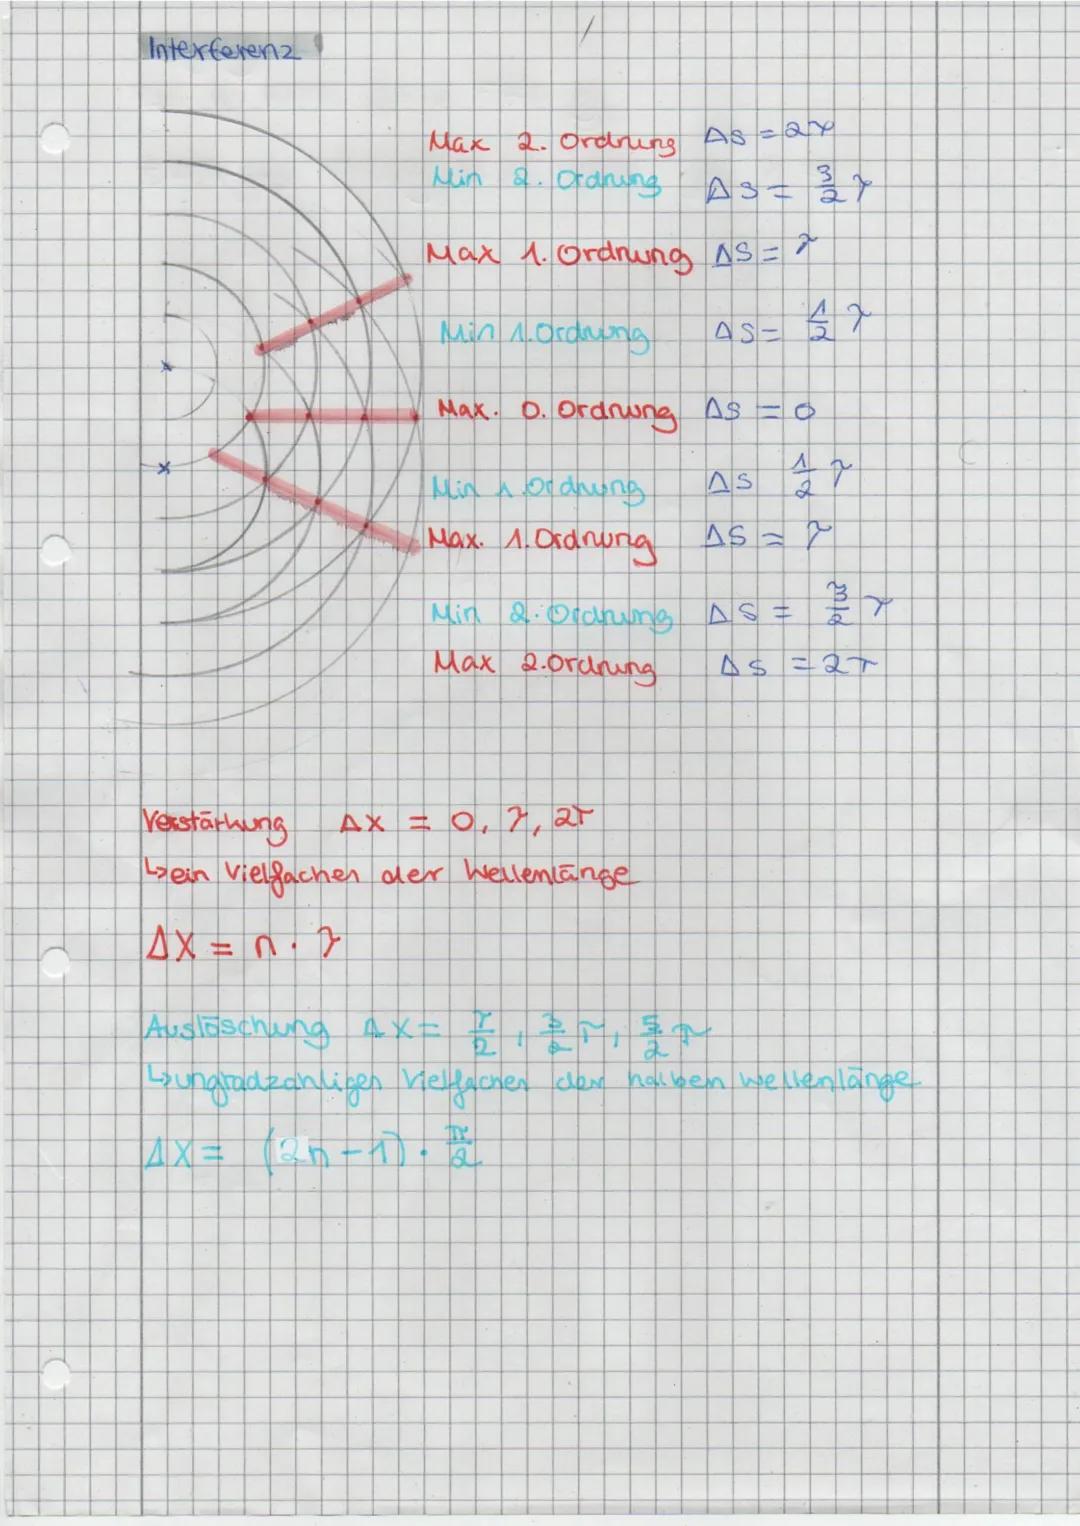 Interferenz
Max 2. Ordnung Δs = 2λ
Min 2. Ordnung Δs = 3/2 λ
Max 1. Ordnung Δs = λ
Min 1. Ordnung Δs = 1/2 λ
Max. 0. Ordnung Δs = 0
Min 1. Ordnung Δs 1/2 λ
Max. 1. Ordnung Δs = λ
Min 2. Ordnung Δs = 3/2 λ
Max 2. Ordnung Δs = 2λ
Verstärkung Δx = 0, λ, 2λ
↳ ein Vielfaches der Wellenlänge
Δx = n · λ
Auslöschung Δx = λ/2, 3/2 λ, 5/2 λ
↳ ungradzahliges Vielfaches der halben wellenlänge
Δx = (2n-1) · λ/2